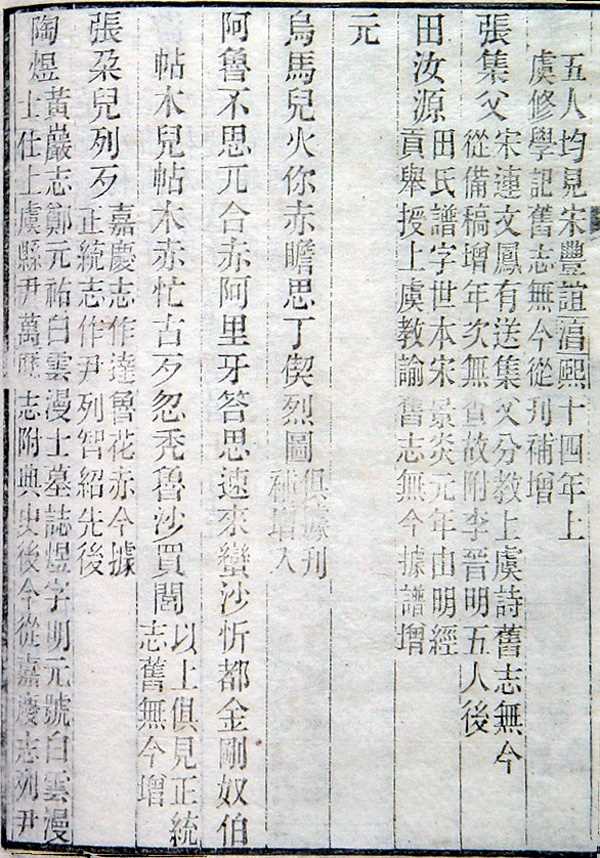 五人均見宋豐誼湻熙十四年上
虞修學記舊志無今從刊補增
張集父
宋連文鳳有送集父分教上虞詩舊志無今
從備稿增年次無查故附李晉明五人後
田汝源
田氏譜字世本宋景炎元年由明經
貢舉授上虞教諭舊志無今據譜增
元
烏馬兒火你赤瞻思丁偰烈圖
俱據刊
補增入
阿魯不思兀合赤阿里牙答思速來蠻沙忻都金剛奴伯
帖木兒帖木赤忙古歹忽禿魯沙買閭
以上俱見正統
志舊無今增
張朶兒列歹
嘉慶志作達魯花赤今據
正統志作尹列智紹先後
陶煜
黃巖志鄭元祐白雲漫士墓誌煜字明元號白雲漫
士仕上虞縣尹萬歷志附典史後今從嘉慶志列尹